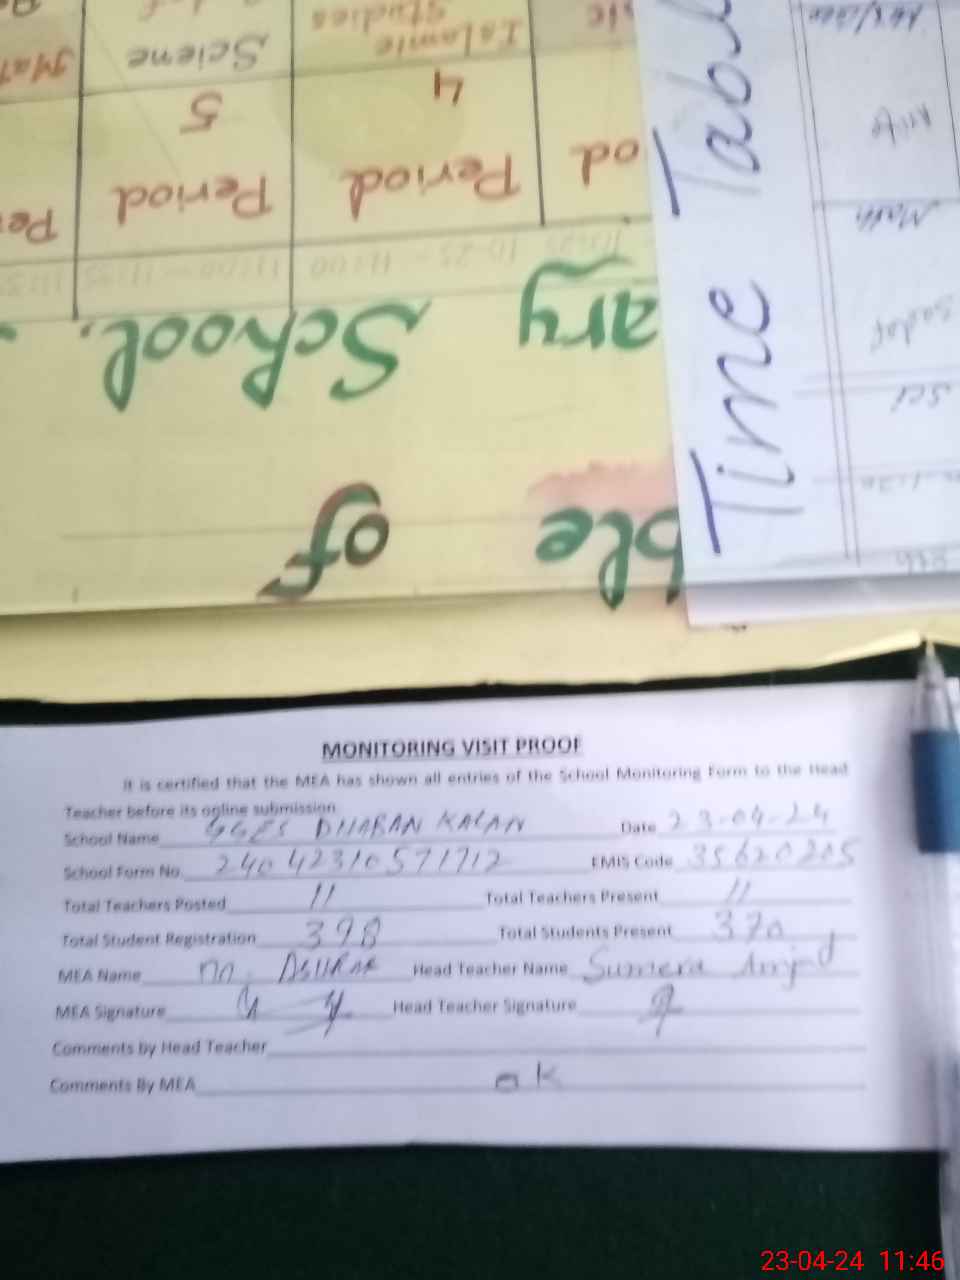 Sciene
Islamic
Studies
5
4
Period
Period
od
11:00 - 11:35
10-25 - 11:00
School.
ary
of
ble
Time Tabl
Math
MONITORING VISIT PROOF
It is certified that the MEA has shown all entries of the School Monitoring Form to the Head
Teacher before its online submission.
School Name GGES DHARAN KALAN Date 23-04-24
School Form No. 24042310571712 EMIS Code 35620205
Total Teachers Posted 11 Total Teachers Present 11
Total Student Registration 398 Total Students Present 370
MEA Name M. Head Teacher Name Sumera Amjad
MEA Signature Head Teacher Signature
Comments by Head Teacher
Comments By MEA ok
23-04-24 11:46